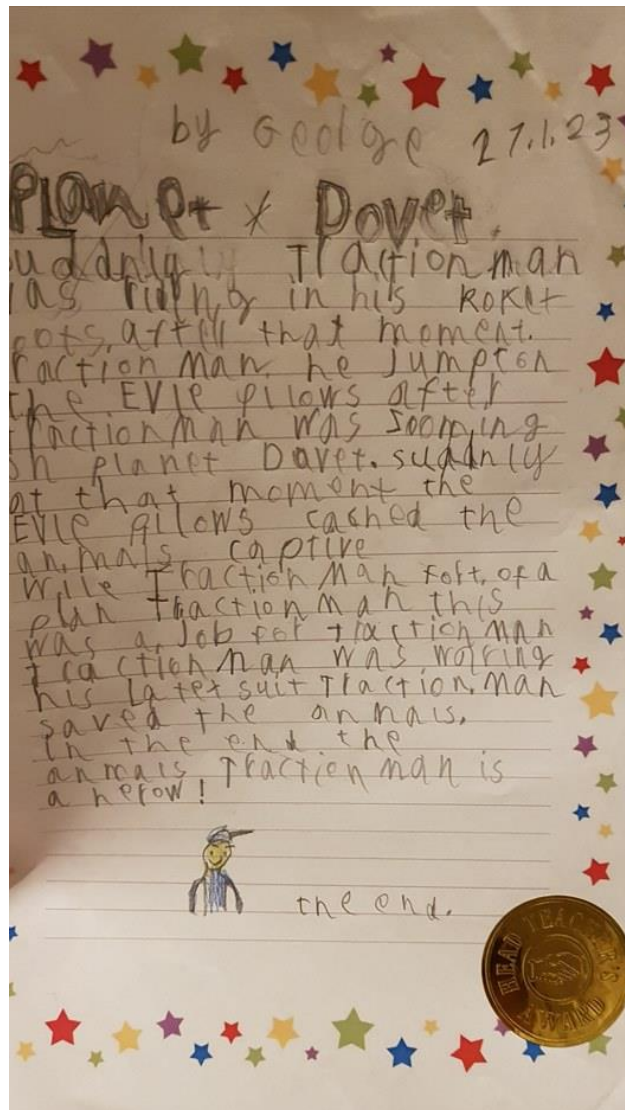 by George 27.1.23
Planet * Dovet.
uddnly Tractionman
as riding in his Roket
oots. after that moment.
raction man. he Jumpt on
the EVIe pilows after
tractionman was Sooming
on planet Davet. suddnly
at that moment the
EVIe qillows cached the
animals captive
Wile Traction Man fort. of a
plan tractionman this
was a Job for traction man
tractionman was waring
his Latex suit Traction.man
saved the animals.
in the end the
animals Traction man is
a herow!
the end.
HEAD TEACHER'S
AWARD